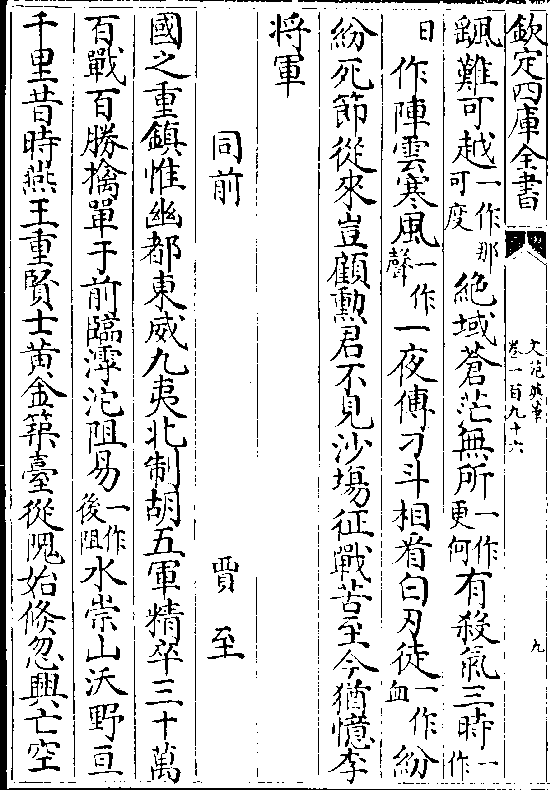 欽定四庫全書
文苑英華
卷一百九十六
九
颻難可越一作那可度絶域蒼茫無所一作更何有殺氣三時一作
日作陣雲寒風一作聲一夜傳刁斗相看白刃徒一作血紛
紛死節從來豈顧勲君不見沙塲征戰苦至今猶憶李
将軍
同前 賈至
國之重鎮惟幽都東威九夷北制胡五軍精卒三十萬
百戰百勝擒單于前臨滹沱阻易一作後阻水崇山沃野亘
千里昔時燕王重賢士黄金築臺從隗始倐忽興亡空